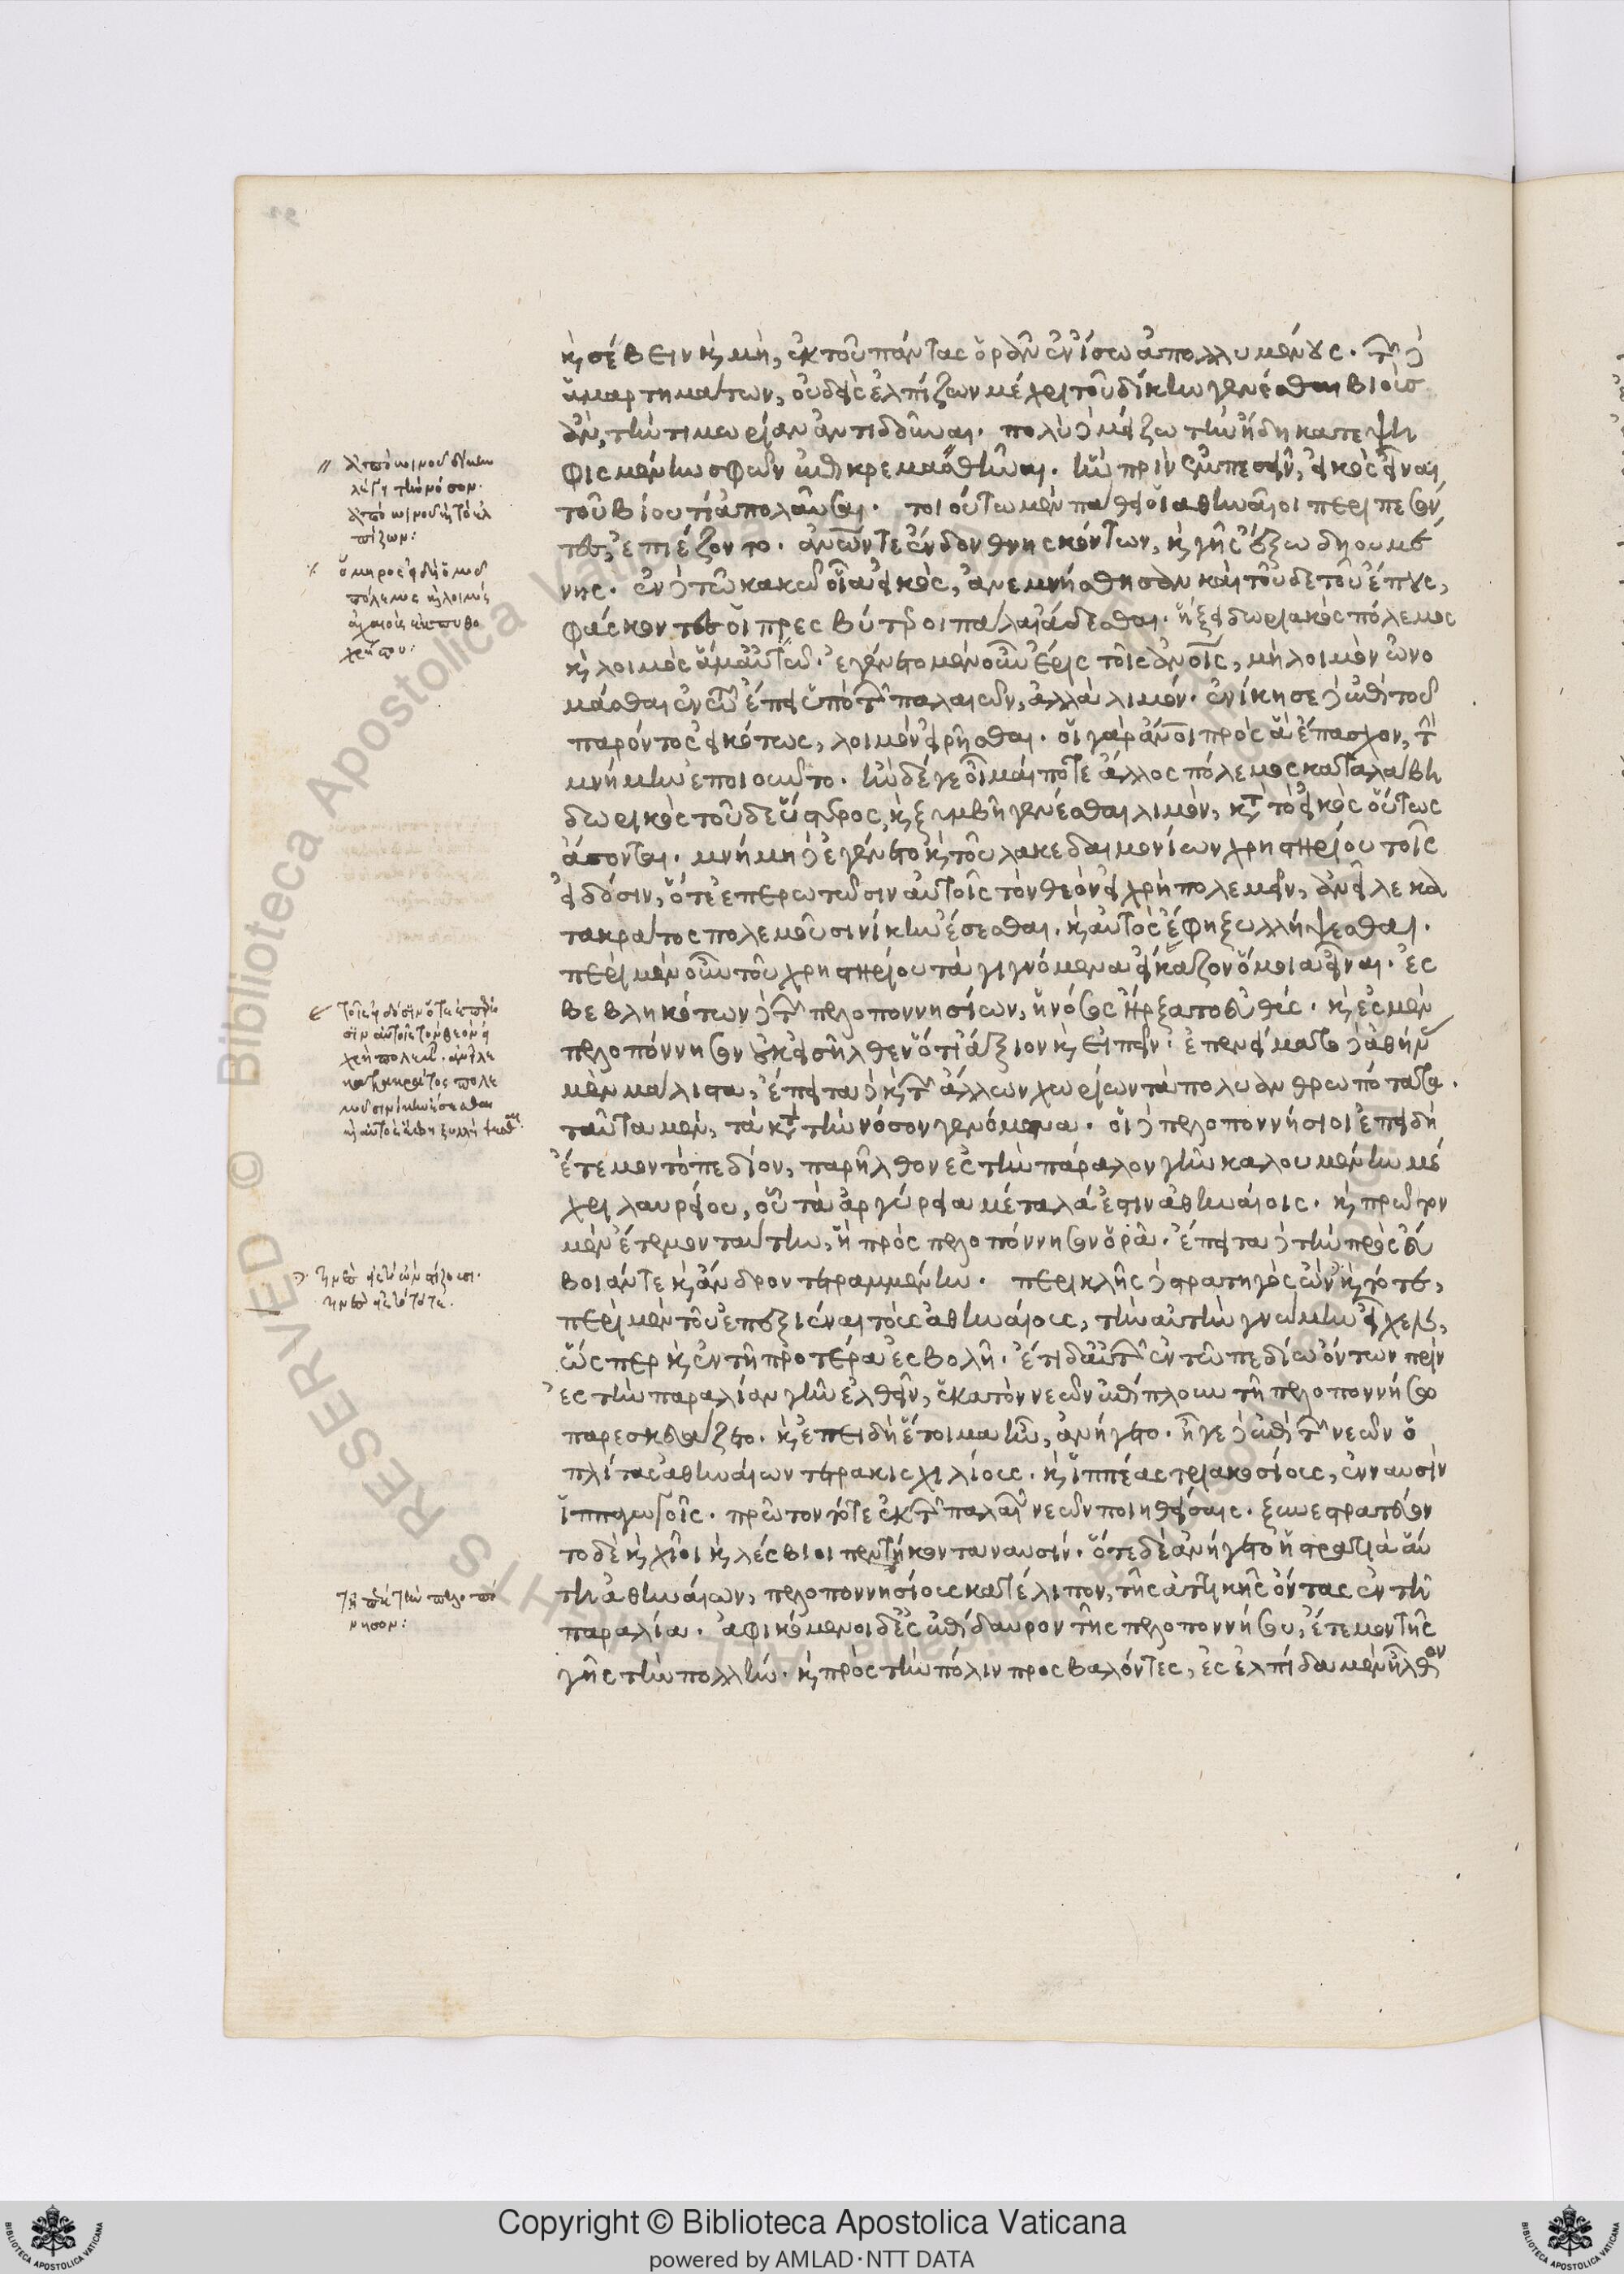 καὶ σέβειν καὶ μὴ, ἐκ τοῦ πάντας ὁρᾶν ἐν ἴσω ἀπολλυμένους. τῶν δὲ
ἁμαρτημάτων, οὐδεὶς ἐλπίζων μέχρι τοῦ δίκην γενέσθαι βιοὺς
ἂν, τὴν τιμωρίαν ἀντιδοῦναι. πολὺ δὲ μείζω τὴν ἤδη κατεψη
φισμένην σφῶν ἐπικρεμασθῆναι. ἣν πρὶν ἐμπεσεῖν, εἰκὸς εἶναι
τοῦ βίου τι ἀπολαῦσαι. τοιούτω μὲν πάθει οἱ ἀθηναῖοι περιπεσόν
τες, ἐπιέζοντο. ἀνθρώπων τε ἔνδον θνησκόντων, καὶ γῆς ἔξω δηουμέ
νης. ἐν δὲ τῶ κακῶ οἷα εἰκὸς, ἀνεμνήσθησαν καὶ τοῦδε τοῦ ἔπους,
φάσκοντες οἱ πρεσβύτεροι πάλαι ἄδεσθαι. ἥξει δωριακὸς πόλεμος
καὶ λοιμὸς ἅμ' αὐτῶ. ἐγένετο μὲν οὖν ἔρις τοῖς ἀνθρώποις, μὴ λοιμὸν ὠνο
μάσθαι ἐν τῶ ἔπει ὑπὸ τῶν παλαιῶν, ἀλλὰ λιμόν. ἐνίκησε δὲ ἐπὶ τοῦ
παρόντος εἰκότως, λοιμὸν εἰρῆσθαι. οἱ γὰρ ἄνθρωποι πρὸς ἃ ἔπασχον, τὴν
μνήμην ἐποιοῦντο. ἢν δέ γε οἶμαί ποτε ἄλλος πόλεμος καταλάβη
δωρικὸς τοῦδε ὕστερος, καὶ ξυμβῆ γενέσθαι λιμὸν, κατὰ τὸ εἰκὸς οὕτως
ἄσονται. μνήμη δὲ ἐγένετο καὶ τοῦ λακεδαιμονίων χρηστηρίου τοῖς
εἰδόσιν, ὅτε ἐπερωτῶσιν αὐτοῖς τὸν θεὸν εἰ χρὴ πολεμεῖν, ἀνεῖλε κα
τακράτος πολεμοῦσι νίκην ἔσεσθαι. καὶ αὐτὸς ἔφη ξυλλήψεσθαι.
περὶ μὲν οὖν τοῦ χρηστηρίου τὰ γιγνόμενα εἴκαζον ὅμοια εἶναι. ἐς
βεβληκότων δὲ τῶν πελοποννησίων, ἡ νόσος ἤρξατο εὐθύς. καὶ ἐς μὲν
πελοπόννησον οὐκ εἰσῆλθεν ὅ τι ἄξιον καὶ εἰπεῖν. ἐπενείματο δὲ ἀθήνας
μὲν μάλιστα, ἔπειτα δὲ καὶ τῶν ἄλλων χωρίων τὰ πολυανθρωπότατα.
ταῦτα μὲν, τὰ κατὰ τὴν νόσον γενόμενα. οἱ δὲ πελοποννήσιοι ἐπειδὴ
ἔτεμον τὸ πεδίον, παρῆλθον ἐς τὴν πάραλον γῆν καλουμένην μέ
χρι λαυρείου, οὗ τὰ ἀργύρεια μέταλά ἐστιν ἀθηναίοις. καὶ πρῶτον
μὲν ἔτεμον ταύτην, ἣ πρὸς πελοπόννησον ὁρᾶ. ἔπειτα δὲ τὴν πρὸς εὔ
βοιάν τε καὶ ἄνδρον τετραμμένην. περικλῆς δὲ στρατηγὸς ὢν καὶ τότε,
περὶ μὲν τοῦ ἐπεξιέναι τοὺς ἀθηναίους, τὴν αὐτὴν γνώμην εἶχεν,
ὥσπερ καὶ ἐν τῆ προτέρα ἐσβολῆ. ἔτι δ' αὐτῶν ἐν τῶ πεδίω ὄντων πρὶν
ἐς τὴν παραλίαν γῆν ἐλθεῖν, ἑκατὸν νεῶν ἐπίπλουν τῆ πελοποννήσω
παρεσκευάζετο. καὶ ἐπειδὴ ἕτοιμα ἦν, ἀνήγετο. ἦγε δὲ ἐπὶ τῶν νεῶν ὁ
πλίτας ἀθηναίων τετρακισχιλίους. καὶ ἱππέας τριακοσίους, ἐν ναυσὶν
ἱππαγωγοῖς. πρῶτον τότε ἐκ τῶν παλαιῶν νεῶν ποιηθείσαις. ξυνεστρατεύον
το δὲ καὶ χῖοι καὶ λέσβιοι πεντήκοντα ναυσίν. ὅτε δὲ ἀνήγετο ἡ στρατιὰ αὕ
τη ἀθηναίων, πελοποννησίους κατέλιπον, τῆς ἀττικῆς ὄντας ἐν τῆ
παραλία. ἀφικόμενοι δ' ἐς ἐπίδαυρον τῆς πελοποννήσου, ἔτεμον τῆς
γῆς τὴν πολλήν. καὶ πρὸς τὴν πόλιν προσβαλόντες, ἐς ἐλπίδα μὲν ἦλθον
λέγει τὴν νόσον.
ἀπὸ κοινοῦ καὶ τὸ ἐλ
πίζων:
τοῖς εἰδόσιν ὅτε ἐπερω
σιν αὐτοῖς τὸν θεὸν εἰ
χρὴ πολεμεῖν. ἀνεῖλε
κατακράτος πολε
μοῦσι νίκην ἔσεσθαι
καὶ αὐτὸς ἔφη ξυλλήψεσθαι:
© Biblioteca Apostolica Vaticana ALL RIGHTS RESERVED
Copyright © Biblioteca Apostolica Vaticana
powered by AMLAD·NTT DATA
BIBLIOTECA APOSTOLICA VATICANA
BIBLIOTECA APOSTOLICA VATICANA